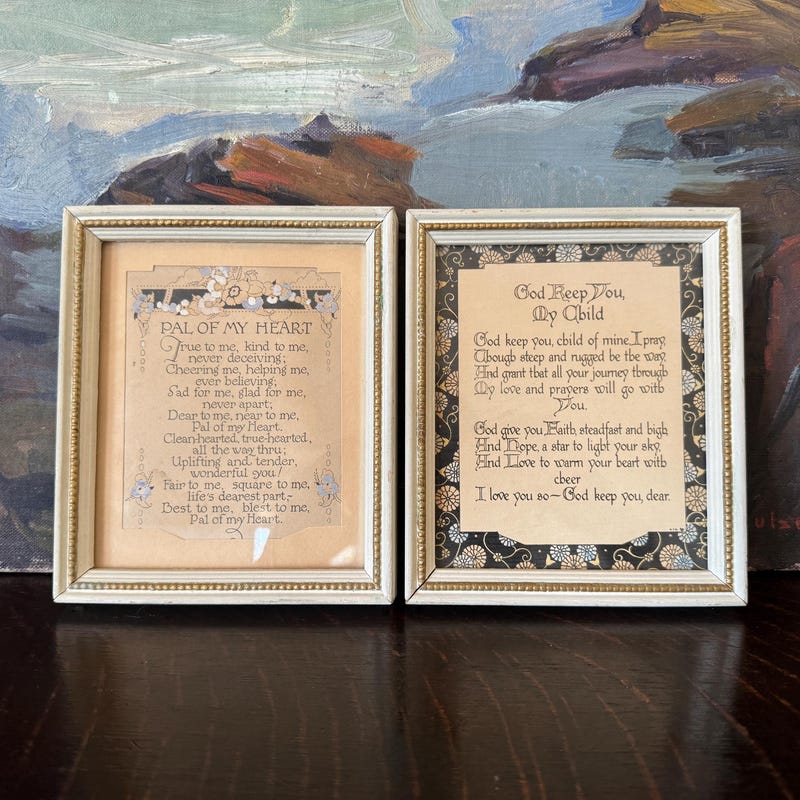 PAL OF MY HEART
True to me, kind to me,
never deceiving;
Cheering me, helping me,
ever believing;
Sad for me, glad for me,
never apart;
Dear to me, near to me,
Pal of my Heart.
Clean-hearted, true-hearted,
all the way thru;
Uplifting and tender,
wonderful you!
Fair to me, square to me,
life's dearest part,-
Best to me, blest to me,
Pal of my Heart.
God Keep You,
My Child
God keep you, child of mine, I pray,
Though steep and rugged be the way,
And grant that all your journey through
My love and prayers will go with
You.
God give you Faith, steadfast and high,
And Hope, a star to light your sky,
And Love to warm your heart with
cheer
I love you so—God keep you, dear.